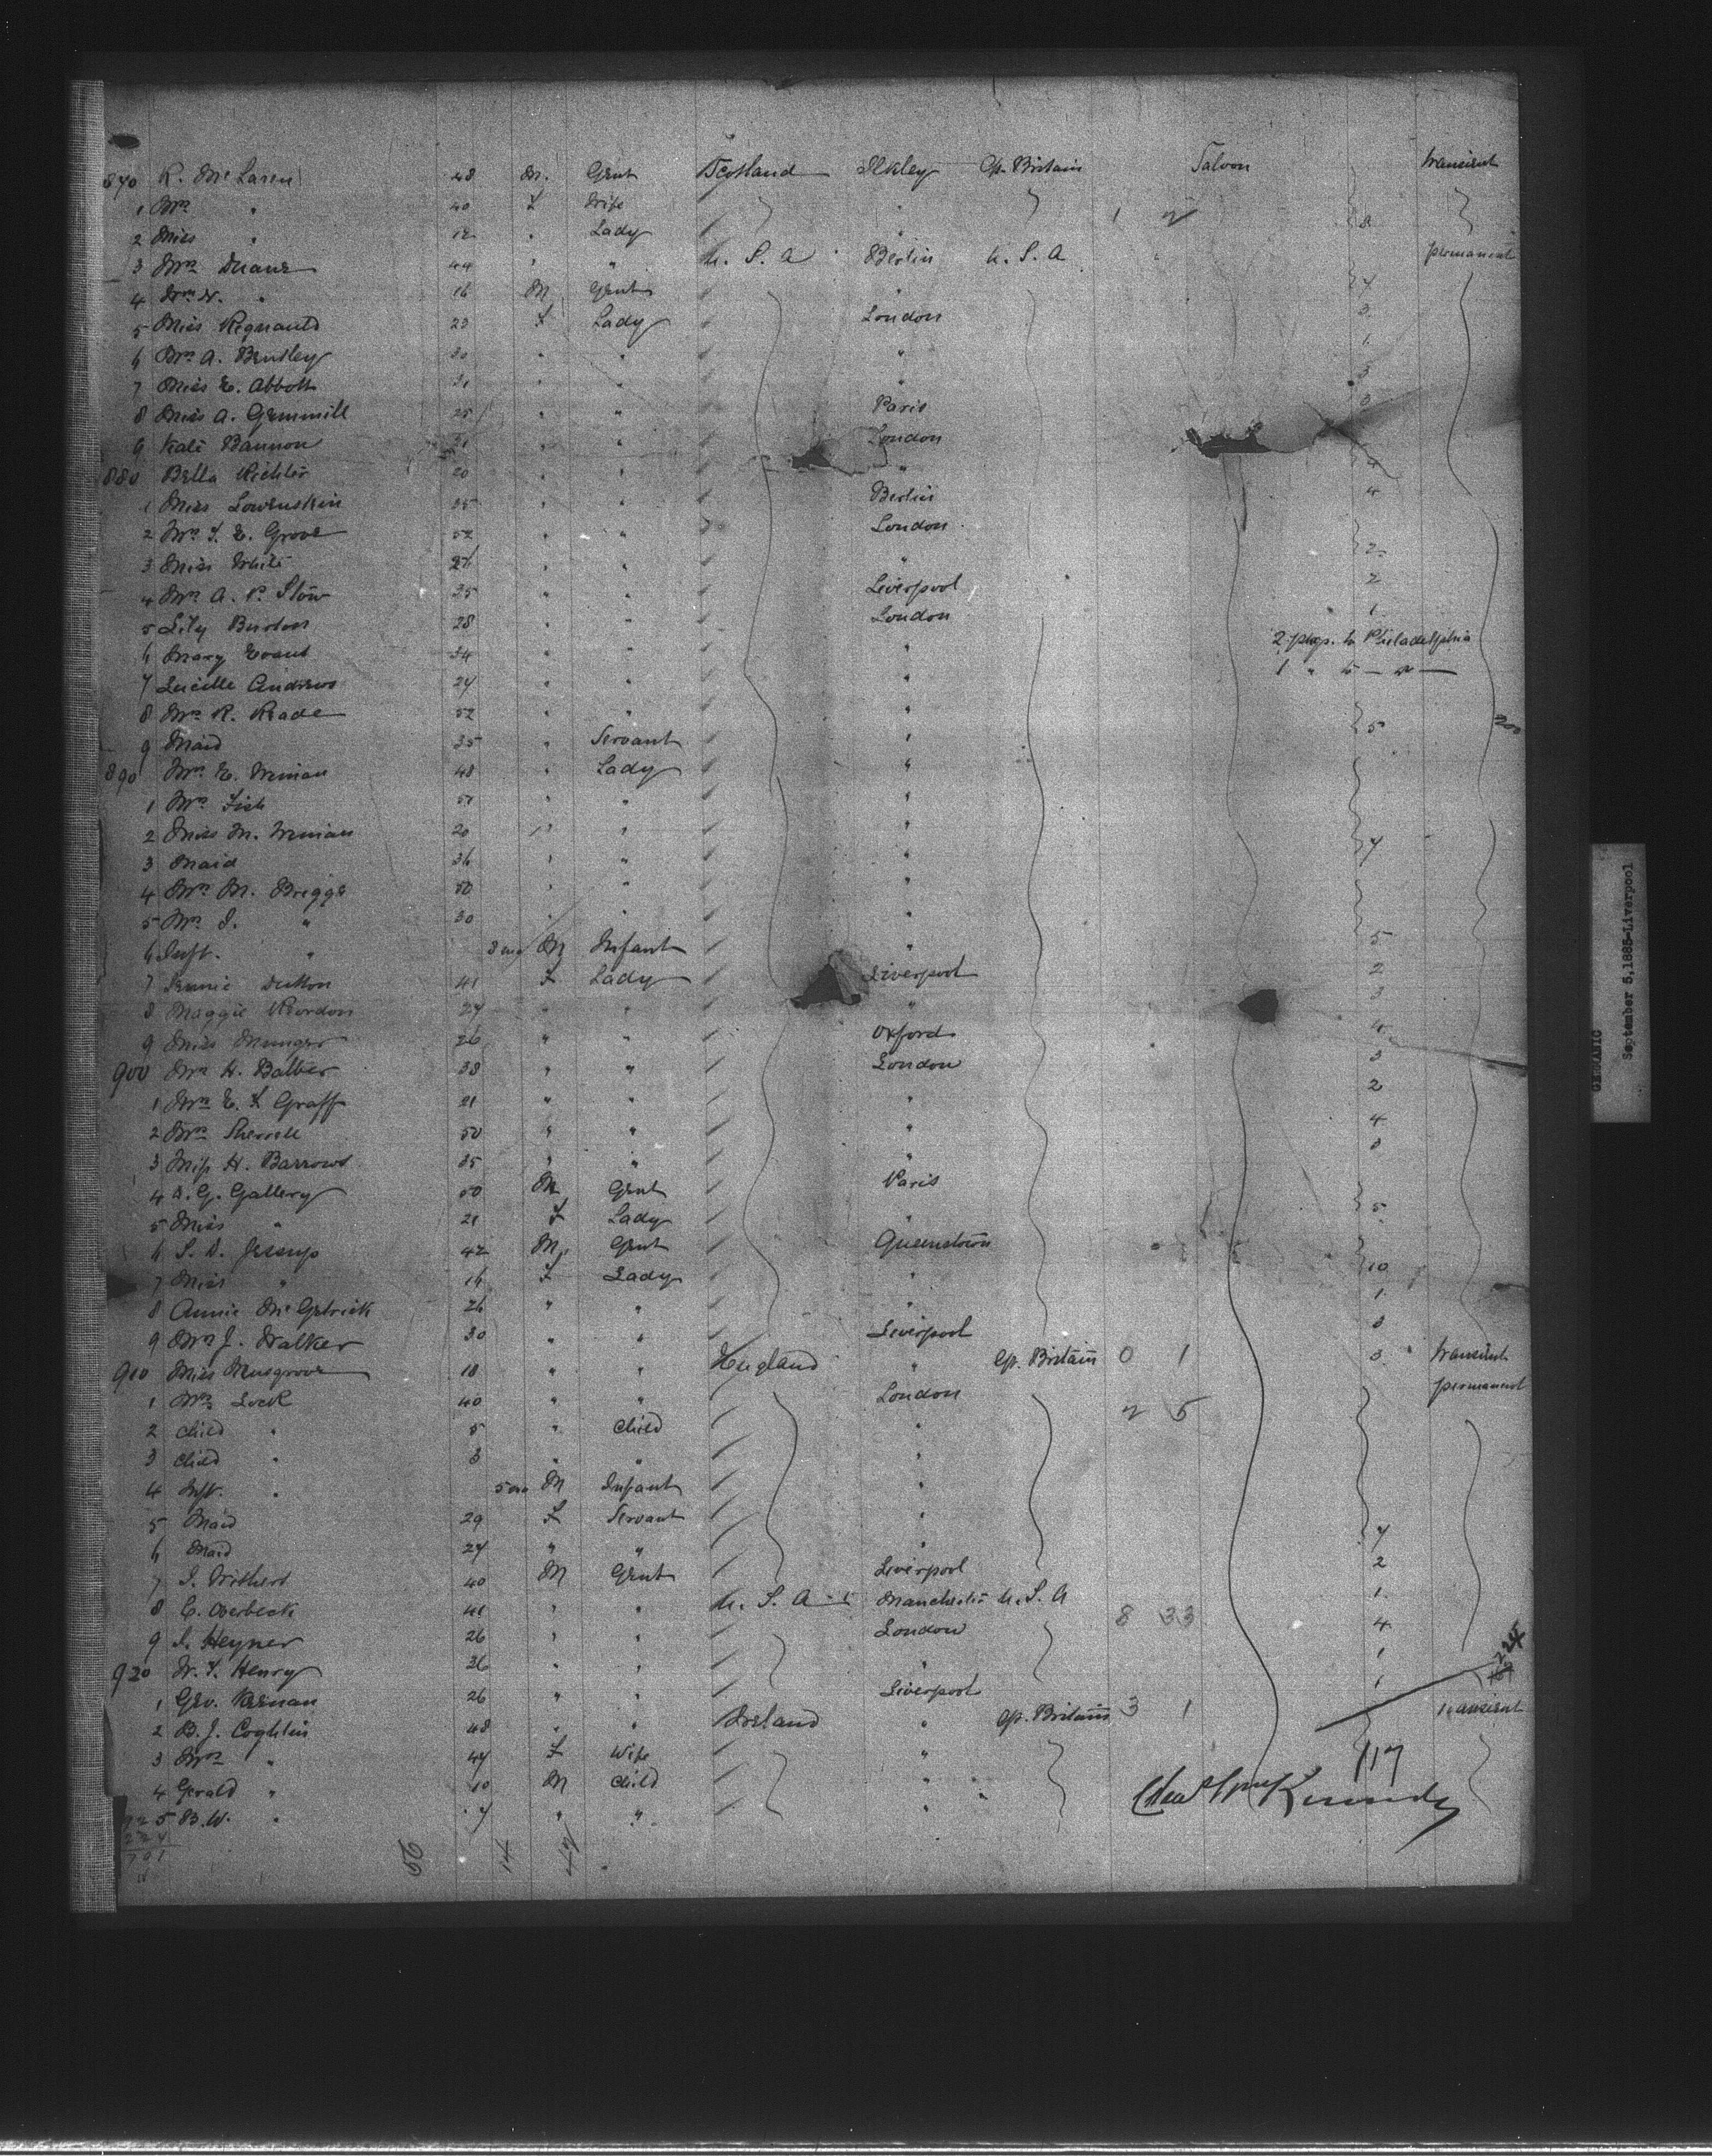 870 R. McLaren 48 M. Gent Scotland Ilkley Gt. Britain Saloon transient
1 Mrs " 40 F Wife " 1 2
2 Miss " 12 " Lady " 8
3 Mrs Duane 44 " " U. S. A Berlin U. S. A permanent
4 Wm N. " 16 M Gent " 4
5 Miss Regnauld 23 F Lady London 3
6 Mrs A. Bentley 30 " " " 1
7 Miss E. Abbott 31 " " " 3
8 Miss A. Gemmill 25 " " Paris 3
9 Kate Bannon 21 " " London
880 Bella Richter 20 " " " 4
1 Miss Lowenstein 35 " " Berlin 4
2 Mrs F. E. Grove 52 " " London
3 Miss White " " " 2
4 Mrs A. P. Stow 35 " " Liverpool 2
5 Lily Burton 28 " " London 1
6 Mary Evans 34 " " " 2 pkgs. to Philadelphia
7 Lucille Andrews 24 " " " 1 " to — " —
8 Mrs R. Reade 52 " " " 5 200
9 Maid 35 " Servant "
890 Mrs E. Wiman 48 " Lady "
1 Mrs Fish 51 " " "
2 Miss M. Wiman 20 " " "
3 Maid 36 " " " 7
4 Mrs M. Briggs 50 " " "
5 Mrs J. " 30 " " "
6 Inft. " 8 mo M Infant " 5
7 Jennie Dutton 41 F Lady Liverpool 2
8 Maggie Reordon 24 " " " 3
9 Miss Munger 26 " " Oxford 4
900 Mrs H. Balber 38 " " London 3
1 Mrs E. F. Graff 21 " " " 2
2 Mrs Sherrell 50 " " " 4
3 Miss H. Barrows 35 " " " 3
4 D. G. Gallery 50 M Gent Paris
5 Miss " 21 F Lady " 5
6 S. D. Jessup 42 M. Gent Queenstown
7 Miss " 16 F Lady " 10
8 Annie McGetrick 26 " " " 1
9 Mrs J. Walker 30 " " Liverpool 3
910 Miss Musgrove 18 " " England " Gt. Britain 0 1 3 transient
1 Mrs Lock 40 " " London 2 5 permanent
2 Child " 5 " Child "
3 Child " 3 " " "
4 Inft. " 5 mo M Infant "
5 Maid 29 F Servant "
6 Maid 24 " " " 7
7 J. Withers 40 M Gent Liverpool 2
8 C. Overbeck 41 " " U. S. A Manchester U. S. A 8 33 1
9 S. Heyner 26 " " London 4
920 W. F. Henry 26 " " " 1
1 Geo. Keenan 26 " " Liverpool 1 224
2 B. J. Coghlin 48 " " Ireland " Gt. Britain 3 1 transient
3 Mrs " 47 F Wife "
4 Gerald " 10 M Child " 117
925 B. W. " 7 " " "
Chas Wm Kennedy
224
701
56 14 42
GERMANIC
September 5, 1885-Liverpool